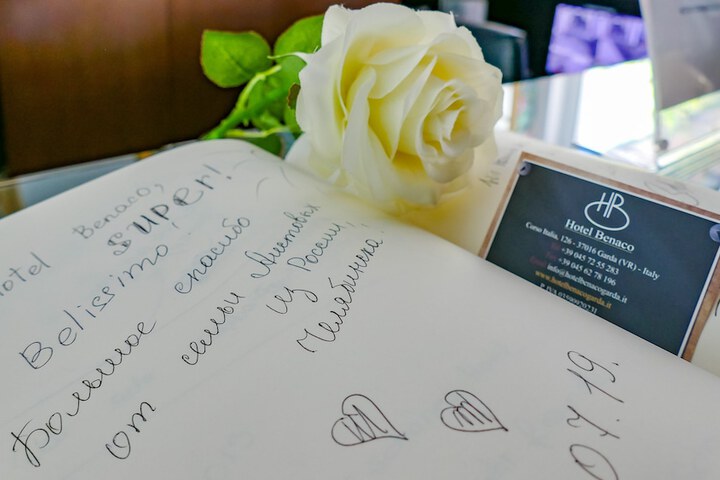 Hotel Benaco,
super!
Belissimo,
Большое спасибо
от семьи
из России,
Челябинска.
07.19.
HB
Hotel Benaco
Corso Italia, 126 - 37016 Garda (VR) - Italy
+39 045 72 55 283
+39 045 62 78 196
info@hotelbenacogarda.it
www.hotelbenacogarda.it